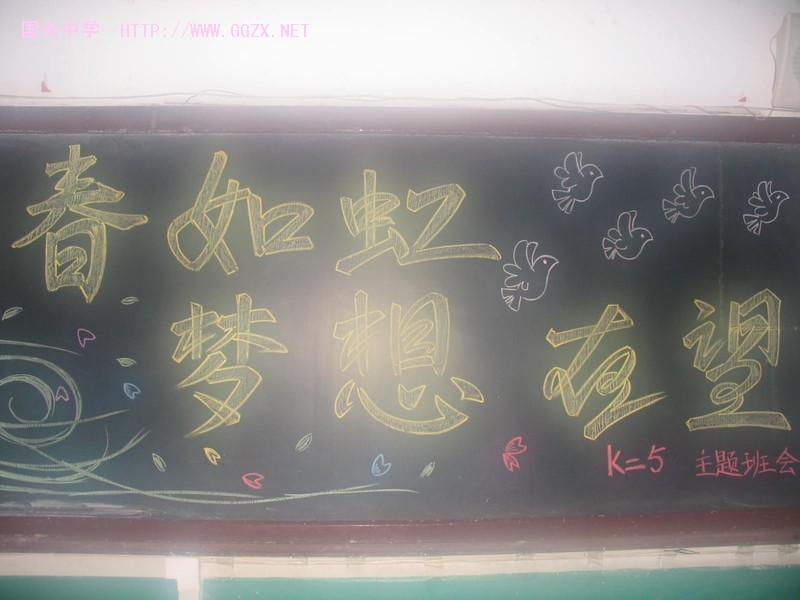 国光中学 HTTP://WWW.GGZX.NET
春如虹
梦想在望
K=5 主题班会